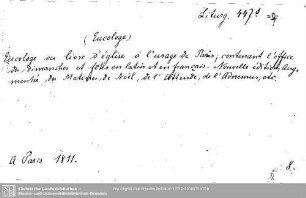 Liturg. 447d
(Eucologe)
Eucologe ou livre d'église à l'usage de Paris, contenant l'office
des Dimanches et fêtes en latin et en français. Nouvelle édition, aug-
mentée des Matines de Noël, de l'Attende, de l'Adoremus, etc.
A Paris 1811.
8.